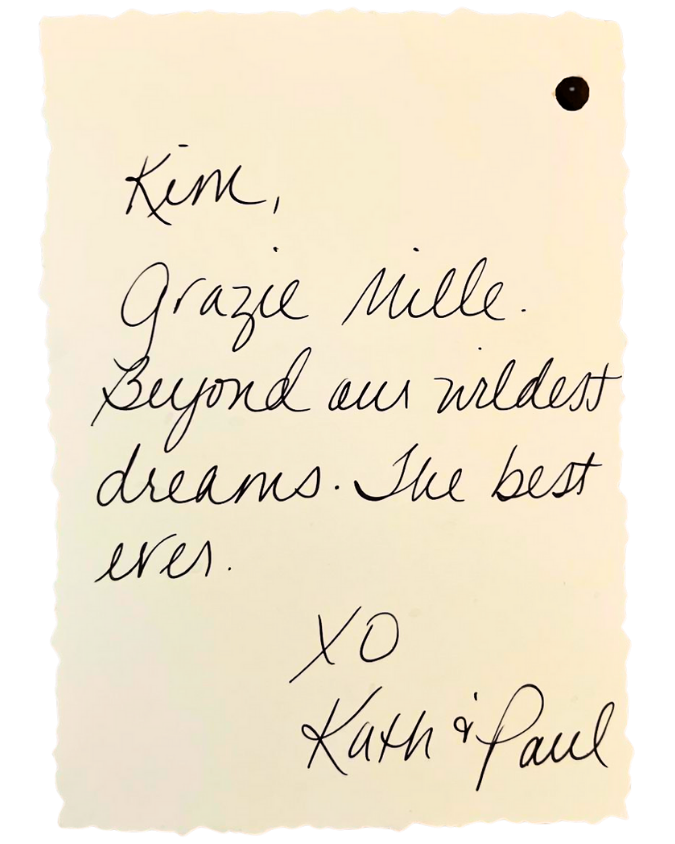 Kim,
Grazie Mille.
Beyond our wildest
dreams. The best
ever.
XO
Kath & Paul